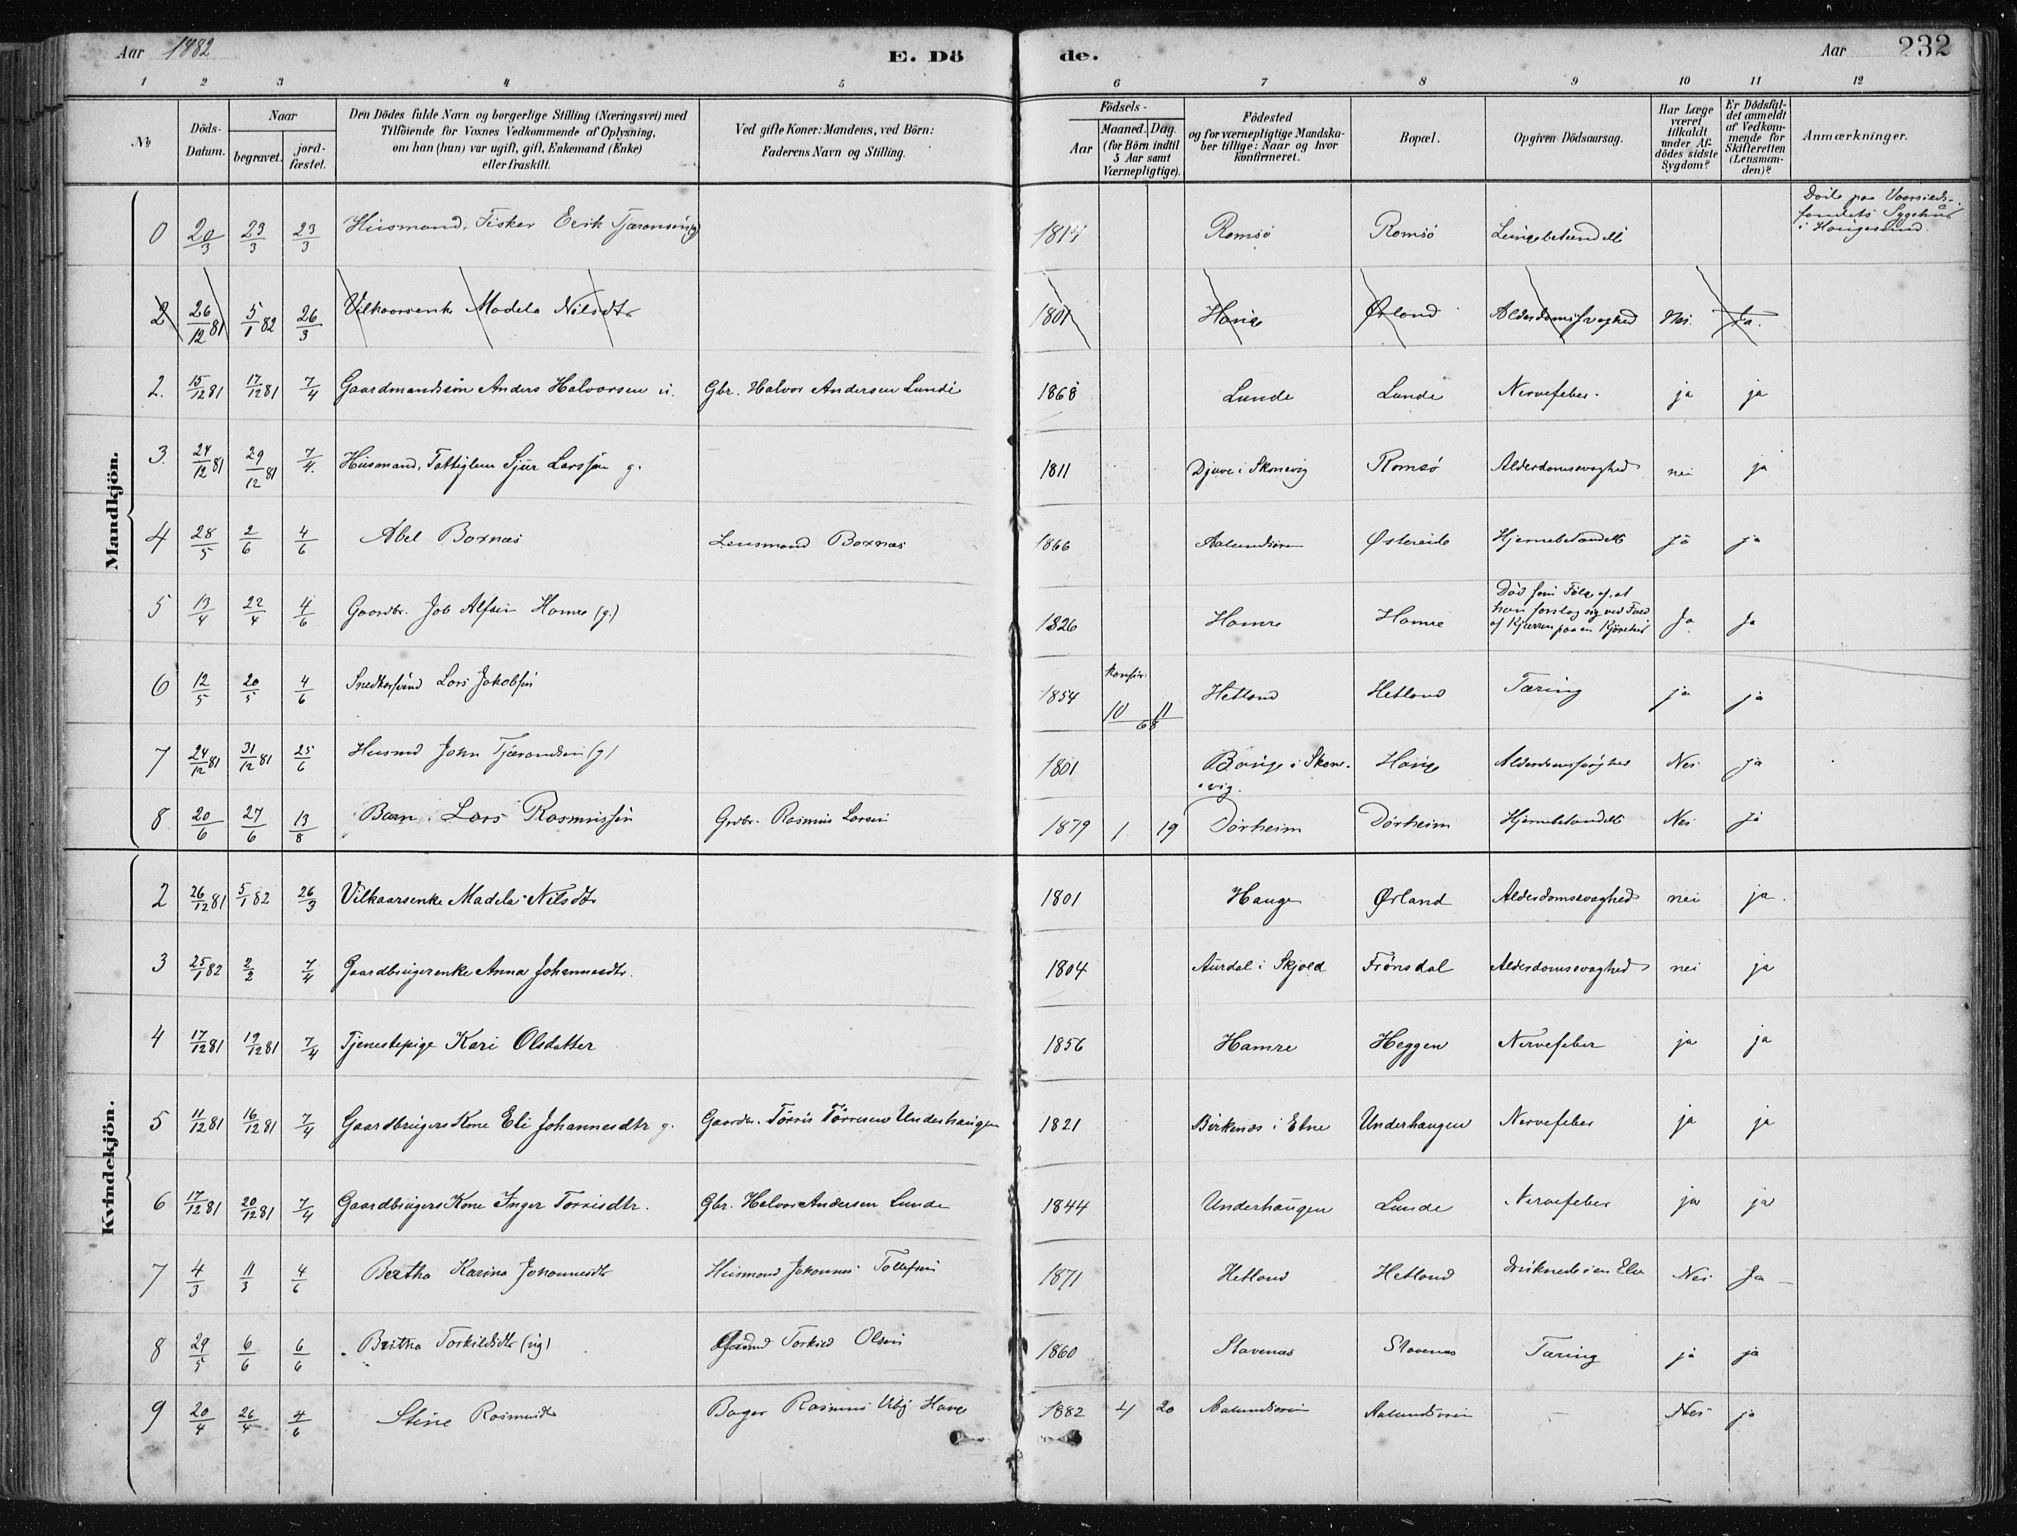 Aar 1882 E. Dö de. Aar 232
1 2 3 4 5 6 7 8 9 10 11 12
No
Döds-Datum.
Naar begravet. jordfæstet.
Den Dödes fulde Navn og borgerlige Stilling (Næringsvei) med Tilföiende for Voxnes Vedkommende af Oplysning, om han (hun) var ugift, gift, Enkemand (Enke) eller fraskilt.
Ved gifte Koner: Mandens, ved Börn: Faderens Navn og Stilling.
Födsels-
Aar Maaned. Dag. (for Börn indtil 5 Aar samt Værnepligtige).
Födested og for værnepligtige Mandskaber tillige: Naar og hvor konfirmeret.
Bopæl.
Opgiven Dödsaarsag.
Har Læge været tilkaldt under Afdödes sidste Sygdom?
Er Dödsfaldet anmeldt af Vedkommende for Skifteretten (Lensmanden)?
Anmærkninger.
Mandkjön.
0 20/3 23/3 23/3 Husmand, Fisker Erik 1814 Romsö Romsö Lungebetændelse Döde paa Sygehus i Haugesund.
2 26/12 81 5/1 82 26/3 Vilkaarsenke Madela Nilsdtr 1801 Hauge Ørland Alderdomssvaghed Nei Ja.
2. 15/12 81 17/12 81 7/4 Gaardmandssön Anders Halvorsen u. Gbr. Halvor Andersen Lunde 1868 Lunde Lunde Nervefeber. ja ja
3. 24/12 81 29/12 81 7/4. Husmand, Fattiglem Sjur Larssön g. 1811 Djuve i Skonevig Romsö Alderdomssvaghed nei ja
4 28/5 2/6 4/6 Abel Boxnæs Lensmand Boxnæs 1866 Aalundsøren Østereide Hjernebetændels Ja ja
5 13/4 22/4 4/6 Gaardbr. Job Alfsen Hamre (g.) 1826 Hamre Hamre Död som Fölge af, at han forslog sig ved Fald af Kjærren paa en Kjöretur Ja Ja
6 12/5 20/5 4/6 Snedkersvend Lars Jakobsen 1854 konfir. 10 11 68 Hetland Hetland Tæring ja ja
7 24/12 81 31/12 81 25/6 Husmd John Tjærandsen (g) 1801 Bauge i Skonevig. Hauge Alderdomssvaghed Nei ja
8 20/6 27/6 13/8 Barn Lars Rasmussen Grdbr. Rasmus Larsen 1879 1 19 Dörheim Dörheim Hjernebetændels Nei Ja
Kvindekjön.
2 26/12 81 5/1 82 26/3 Vilkaarsenke Madela Nilsdtr 1801 Hauge Ørland Alderdomssvaghed nei ja.
3 25/1 82 2/2 7/4 Gaardbrugerenke Anna Johannesdtr. 1804 Aurdal i Skjold Frönsdal Alderdomssvaghed nei ja
4 17/12 81 19/12 81 7/4 Tjenestepige Kari Olsdatter 1856 Hamre Heggen Nervefeber ja ja
5 11/12 81 16/12 81 7/4 Gaardbrugers Kone Eli Johannesdtr g. Gaardbr. Törris Törresen Underhaugen 1821 Birkenæs i Etne Underhaugen Nervefeber ja ja
6 17/12 81 20/12 81 7/4 Gaardbrugers Kone Inger Torrisdtr. Gbr. Halvor Andersen Lunde 1844 Underhaugen Lunde Nervefeber ja ja
7 4/3 11/3 4/6 Bertha Karina Johannesdtr Husmand Johannes Tollefsen 1871 Hetland Hetland druknede i en Elv Nei Ja
8 29/5 6/6 6/6 Britha Torkildsdtr (ug) Torkild Olsen 1860 Stavenæs Stavenæs Tæring ja ja
9 20/4 26/4 4/6 Stine Rasmusdtr Bager Rasmus 1882 4 20 Aalundsøren Aalundsøren - Nei ja